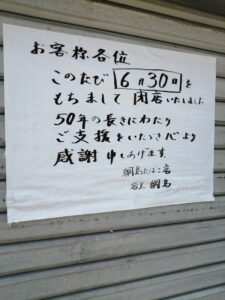 お客様各位
このたび 6月30日を
もちまして 閉店いたしました
50年の長きにわたり
ご支援をいただき心より
感謝申しあげます。
綱島たばこ店
店主 綱島